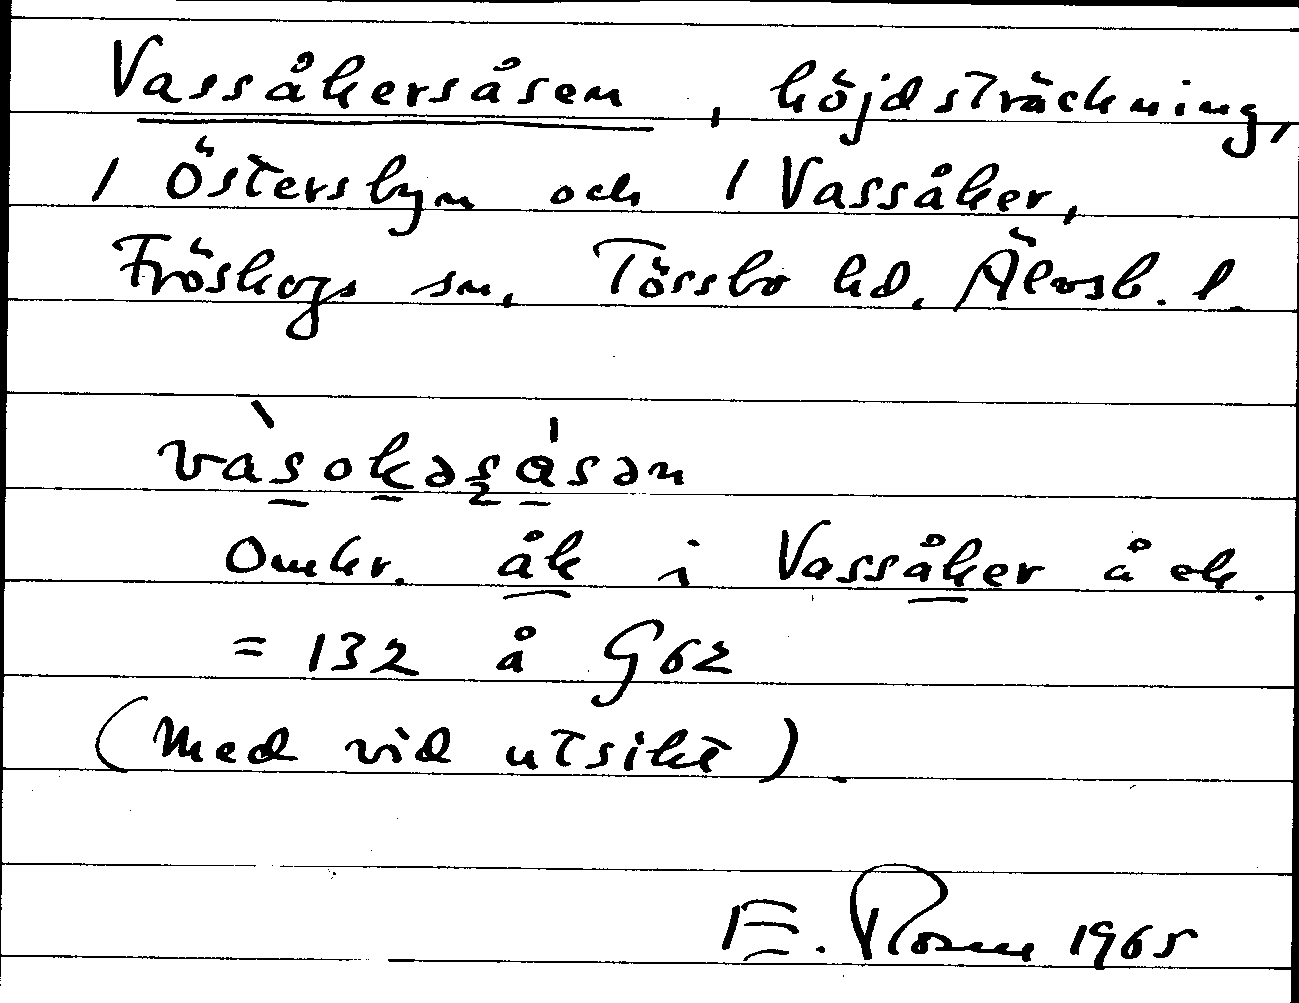 Vassåkersåsen, höjdsträckning,
1 Östersbyn och 1 Vassåker,
Fröskogs sn, Tössbo hd, Älvsb. l.
vàsokəsåsən
Omkr. åk i Vassåker å ek.
= 132 å G62
(Med vid utsikt).
E. Rosen 1965